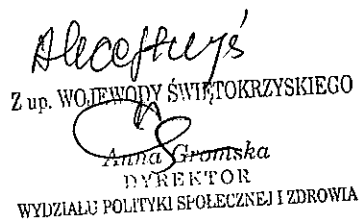 Z up. WOJEWODY ŚWIĘTOKRZYSKIEGO
Anna Gromska
DYREKTOR
WYDZIAŁU POLITYKI SPOŁECZNEJ I ZDROWIA